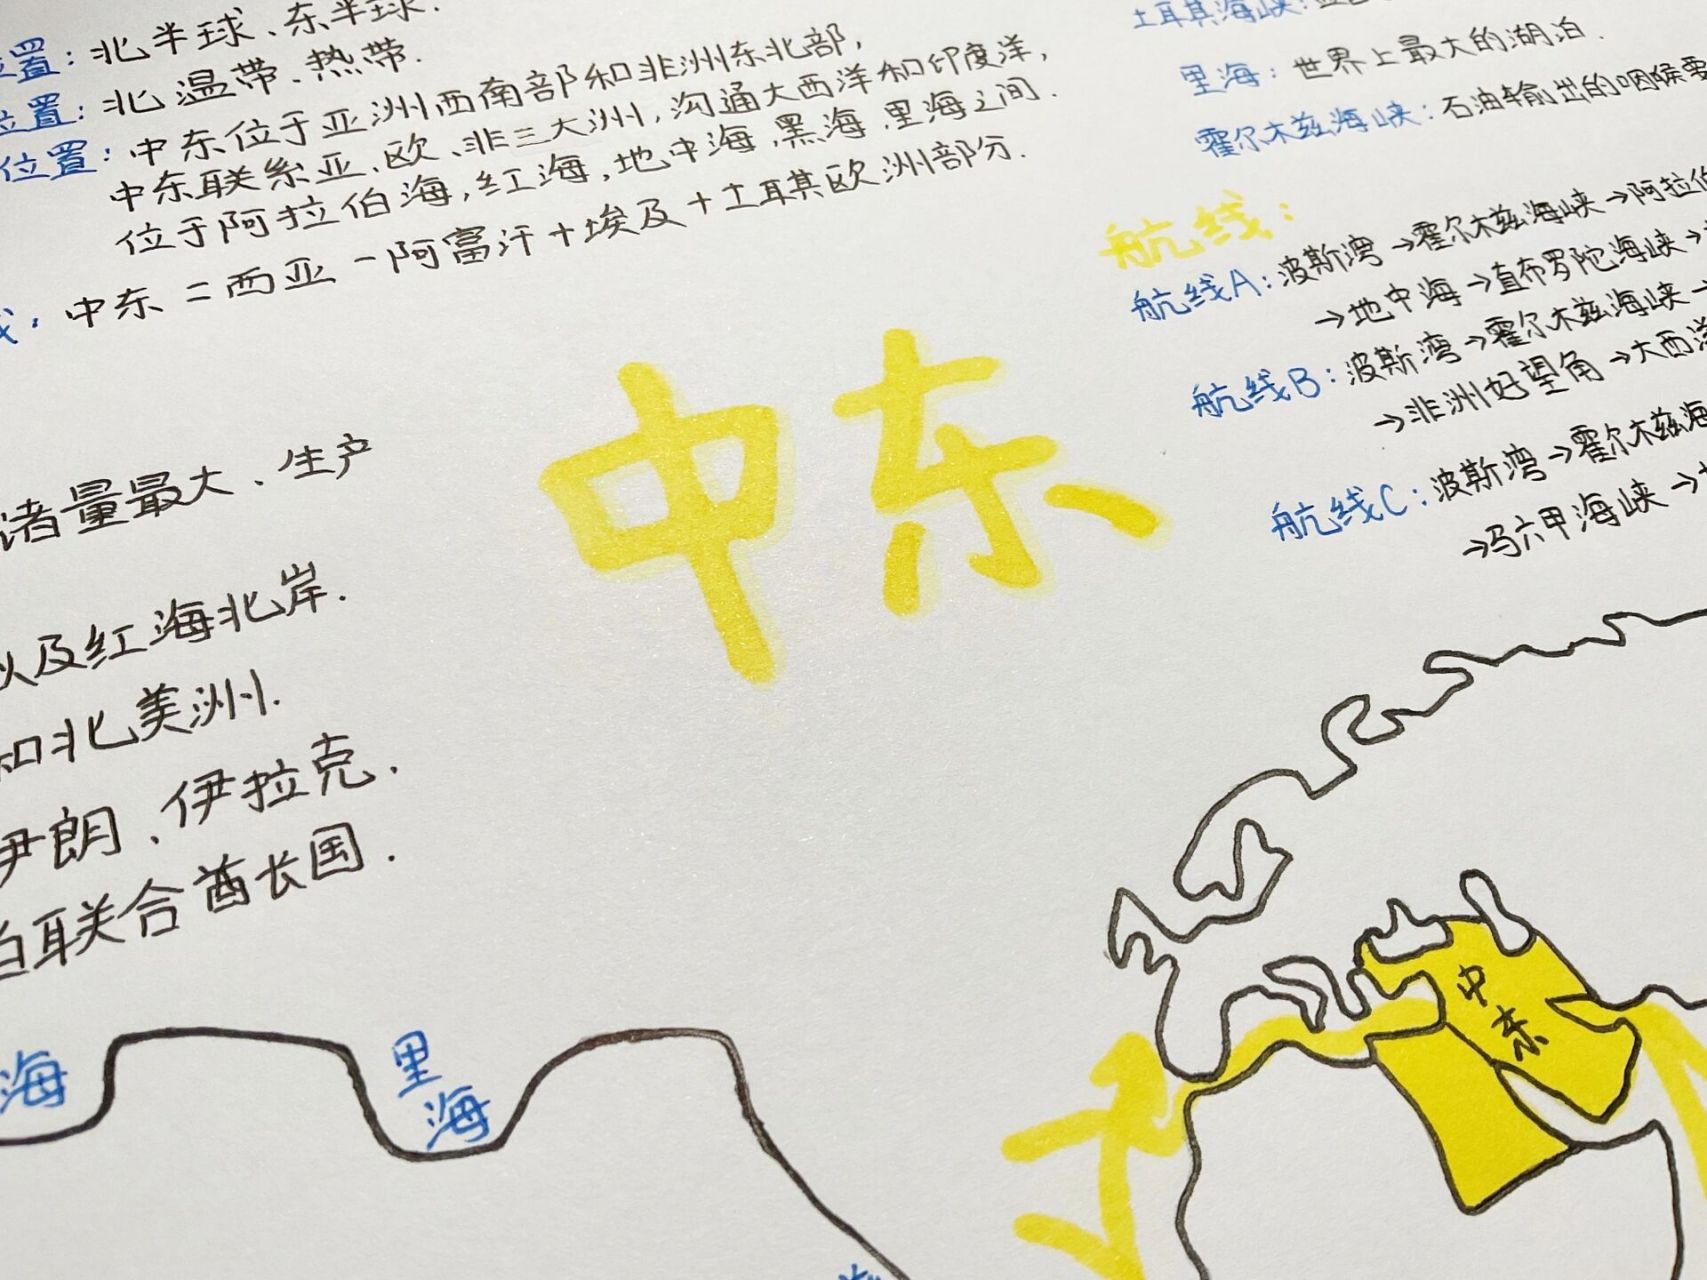 位置：北半球、东半球.
位置：北温带、热带.
位置：中东位于亚洲西南部和非洲东北部，
中东联系亚、欧、非三大洲，沟通大西洋和印度洋，
位于阿拉伯海，红海，地中海，黑海，里海之间.
中东＝西亚－阿富汗＋埃及＋土耳其欧洲部分.
中东
土耳其海峡：
里海：世界上最大的湖泊.
霍尔木兹海峡：石油输出的咽喉要
航线：
航线A：波斯湾→霍尔木兹海峡→阿拉伯
→地中海→直布罗陀海峡→
航线B：波斯湾→霍尔木兹海峡→
→非洲好望角→大西洋
航线C：波斯湾→霍尔木兹海
→马六甲海峡→
储量最大、生产
以及红海北岸.
和北美洲.
伊朗、伊拉克.
白联合酋长国.
海
里海
中东